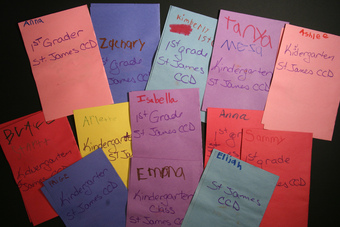 Alina
1st Grader
St. James CCD
Zachary
1st grade
St James
CCD
Kimberly
1st grade
St James
CCD
Tanya
Mesa
Kindergarten
St James CCD
Ashlee
Kindergarten
St. James
CCD
Kindergarten
Kindergarten
St. Ja
CCD
Isabella
1st Grade
St James CCD
Anna
1st
St.
Sammy
1st grade
St James CCD
Kindergarten
St James
CCD
Emma
Kindergarten
Class
St James CCD
Elijah
St James
CCD